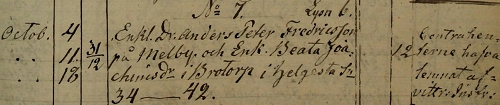 No 7. Lysn 6.
Octob. 4 Enkl. Dr. Anders Peter Fredricsson
" 11 31/12 på Melby, och Enk. Beata Joa- 12 Contrahen-
" 18 chimsdr i Brotorp i Helgesta Sn terne hafva
34 — 42. lemnat af-
vittr: